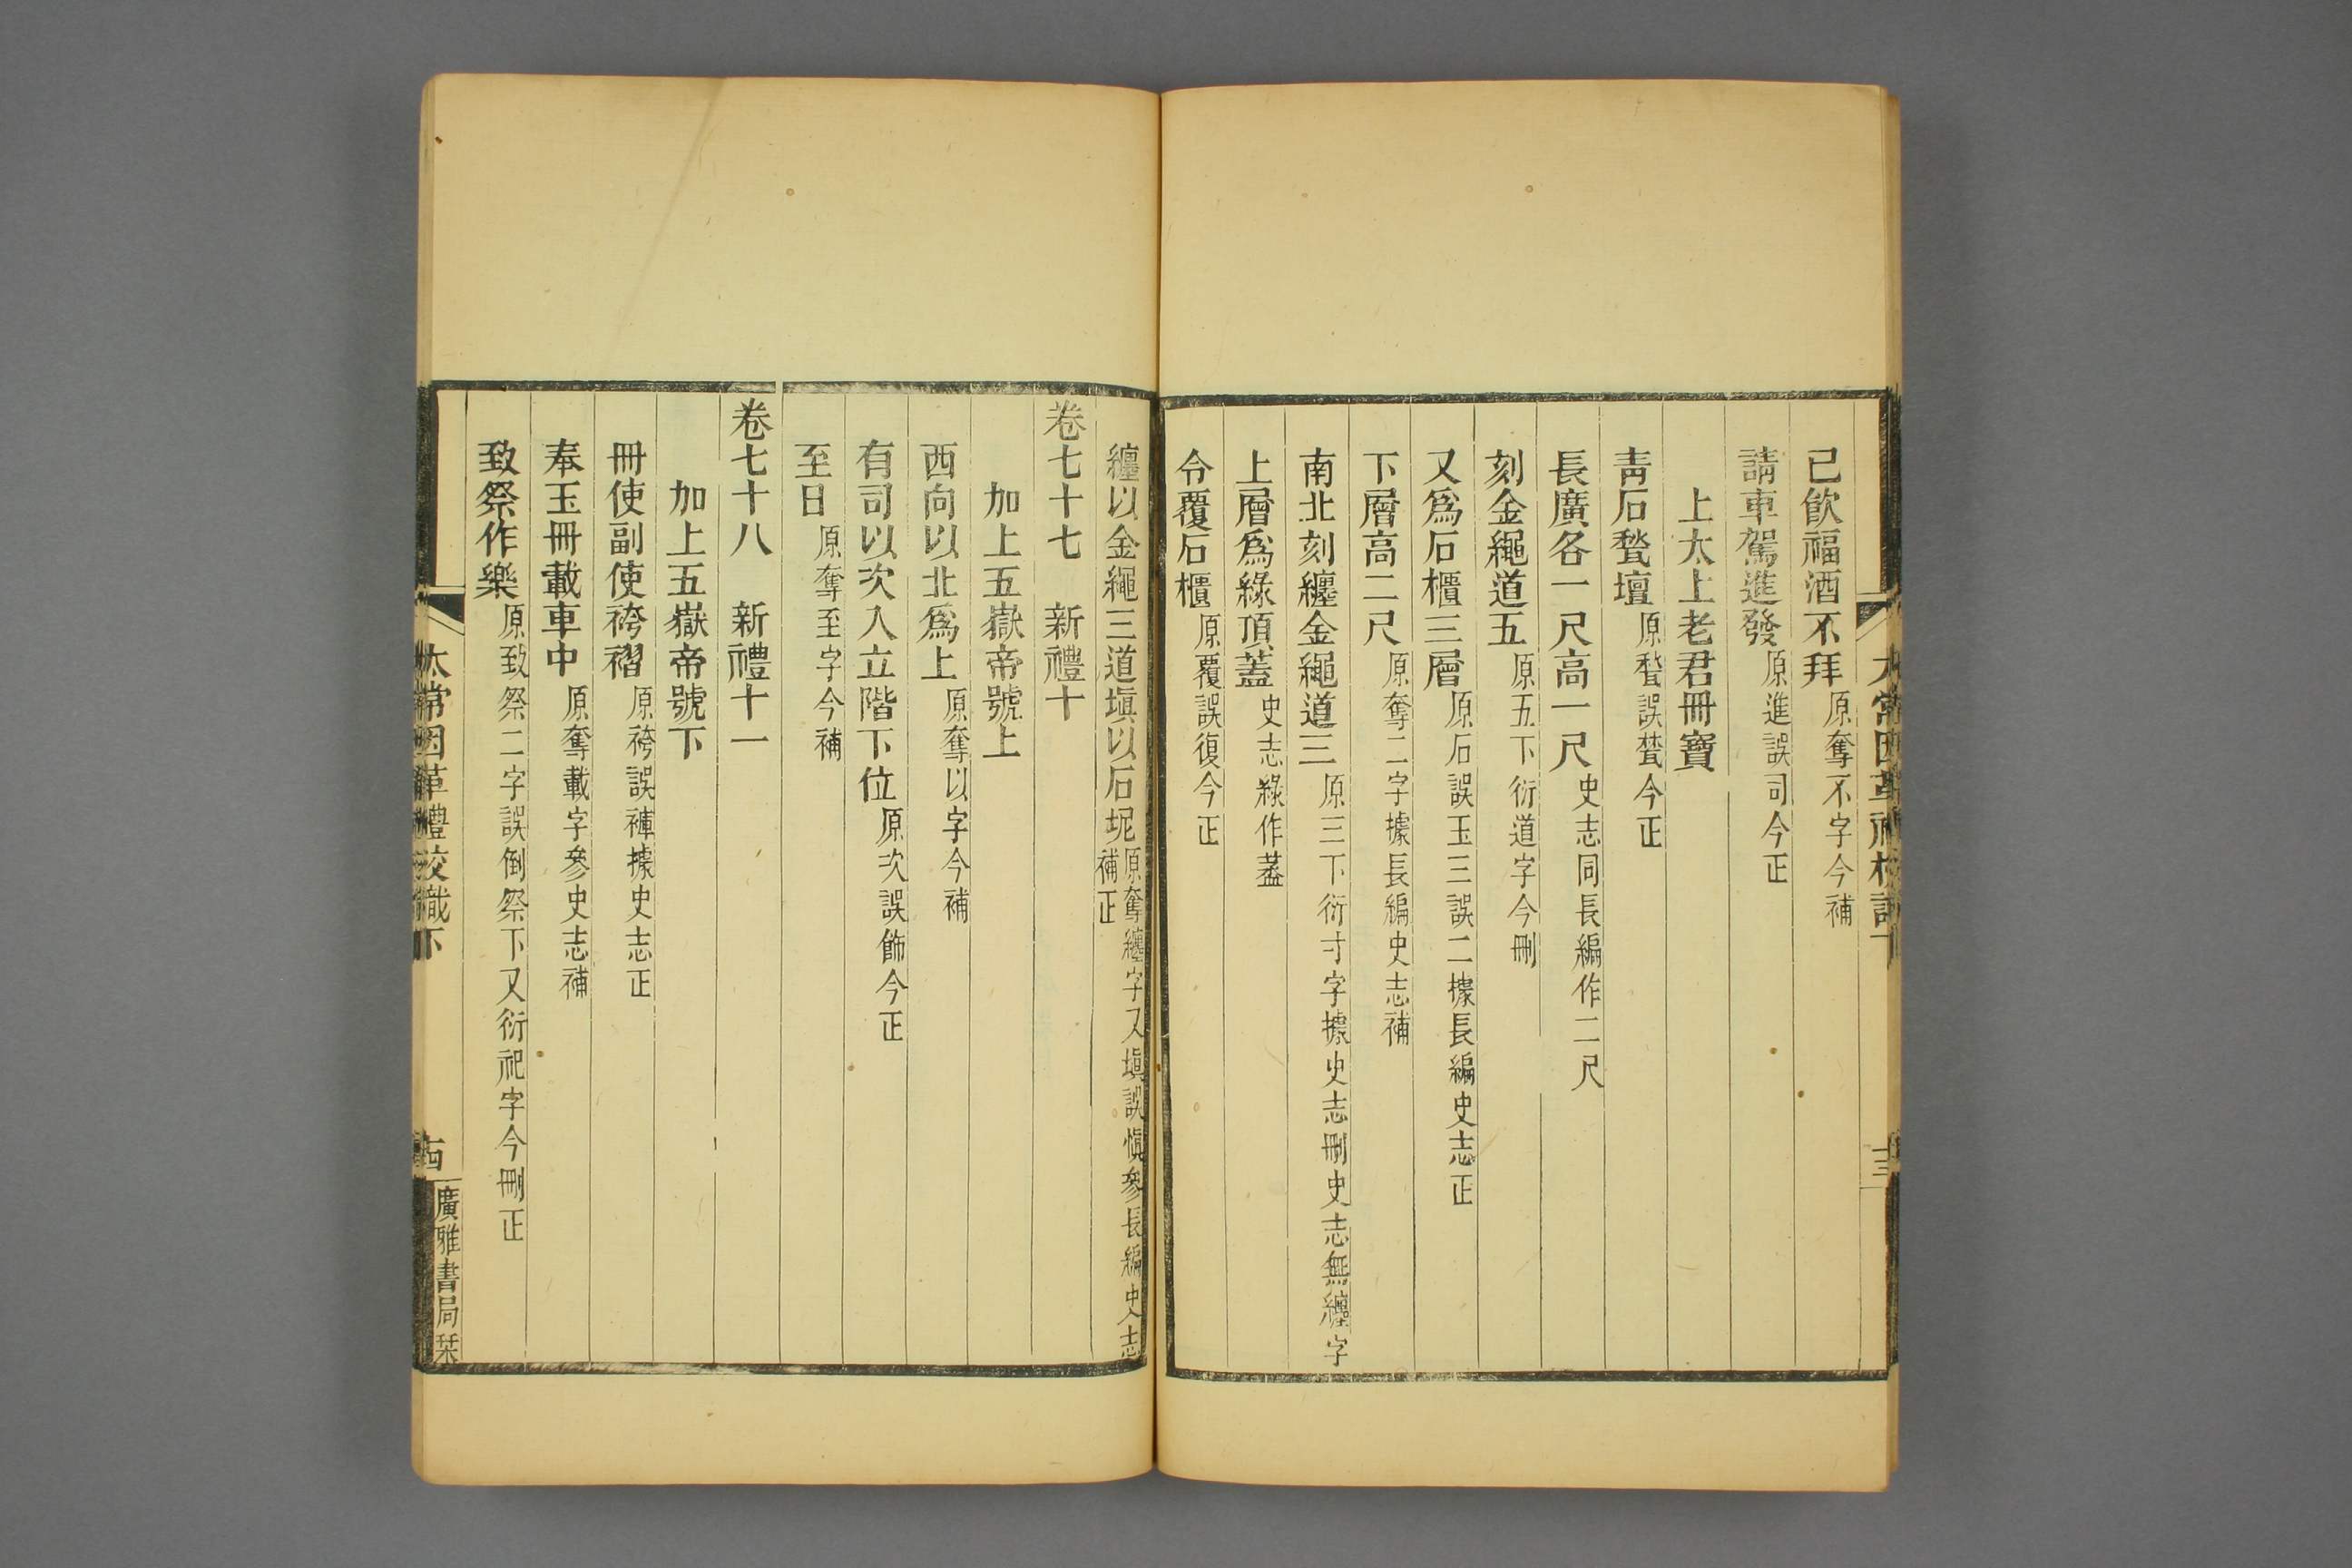 已飲福酒不拜原奪不字今補
請車駕進發原進誤司今正
上太上老君冊寶
靑石甃壇原甃誤㽄今正
長廣各一尺高一尺史志同長編作二尺
刻金繩道五原五下衍道字今刪
又爲石櫃三層原石誤玉三誤二據長編史志正
下層高二尺原奪二字據長編史志補
南北刻纏金繩道三原三下衍寸字據史志刪史志無纏字
上層爲綠頂蓋史志綠作葢
令覆石櫃原覆誤復今正
太常因革禮校識下
十三
纏以金繩三道塡以石坭原奪纏字又塡誤愼參長編史志補正
卷七十七 新禮十
加上五嶽帝號上
西向以北爲上原奪以字今補
有司以次入立階下位原次誤飾今正
至日原奪至字今補
卷七十八 新禮十一
加上五嶽帝號下
冊使副使袴褶原袴誤褲據史志正
奉玉冊載車中原奪載字參史志補
致祭作樂原致祭二字誤倒祭下又衍祀字今刪正
太常因革禮校識下
廣雅書局栞